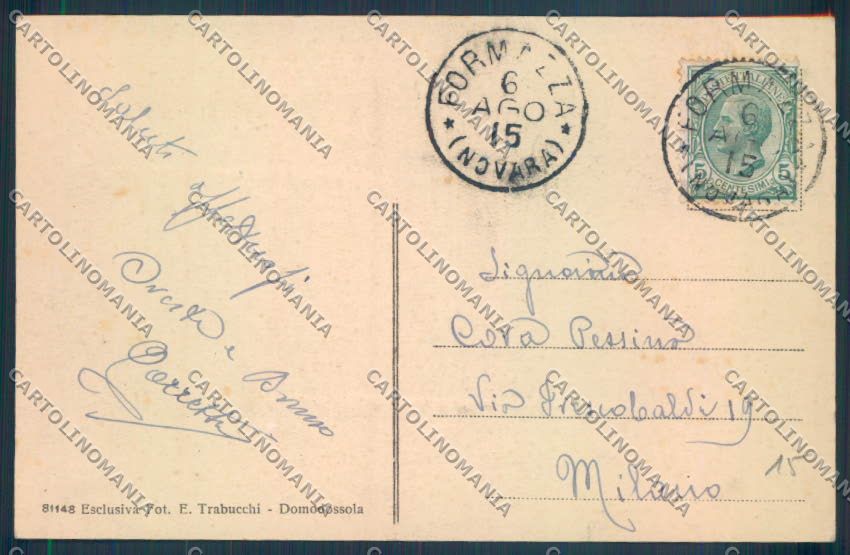 FORMAZZA
6
AGO
15
(NOVARA)
FORMAZZA
6
AGO
15
(NOVARA)
POSTE ITALIANE
5 CENTESIMI 5
Saluti
affettuosi
Oreste e Bruno
Signorina
Cova Pessina
Via Frescobaldi 19
Milano
15
81148 Esclusiva Fot. E. Trabucchi - Domodossola
CARTOLINOMANIA